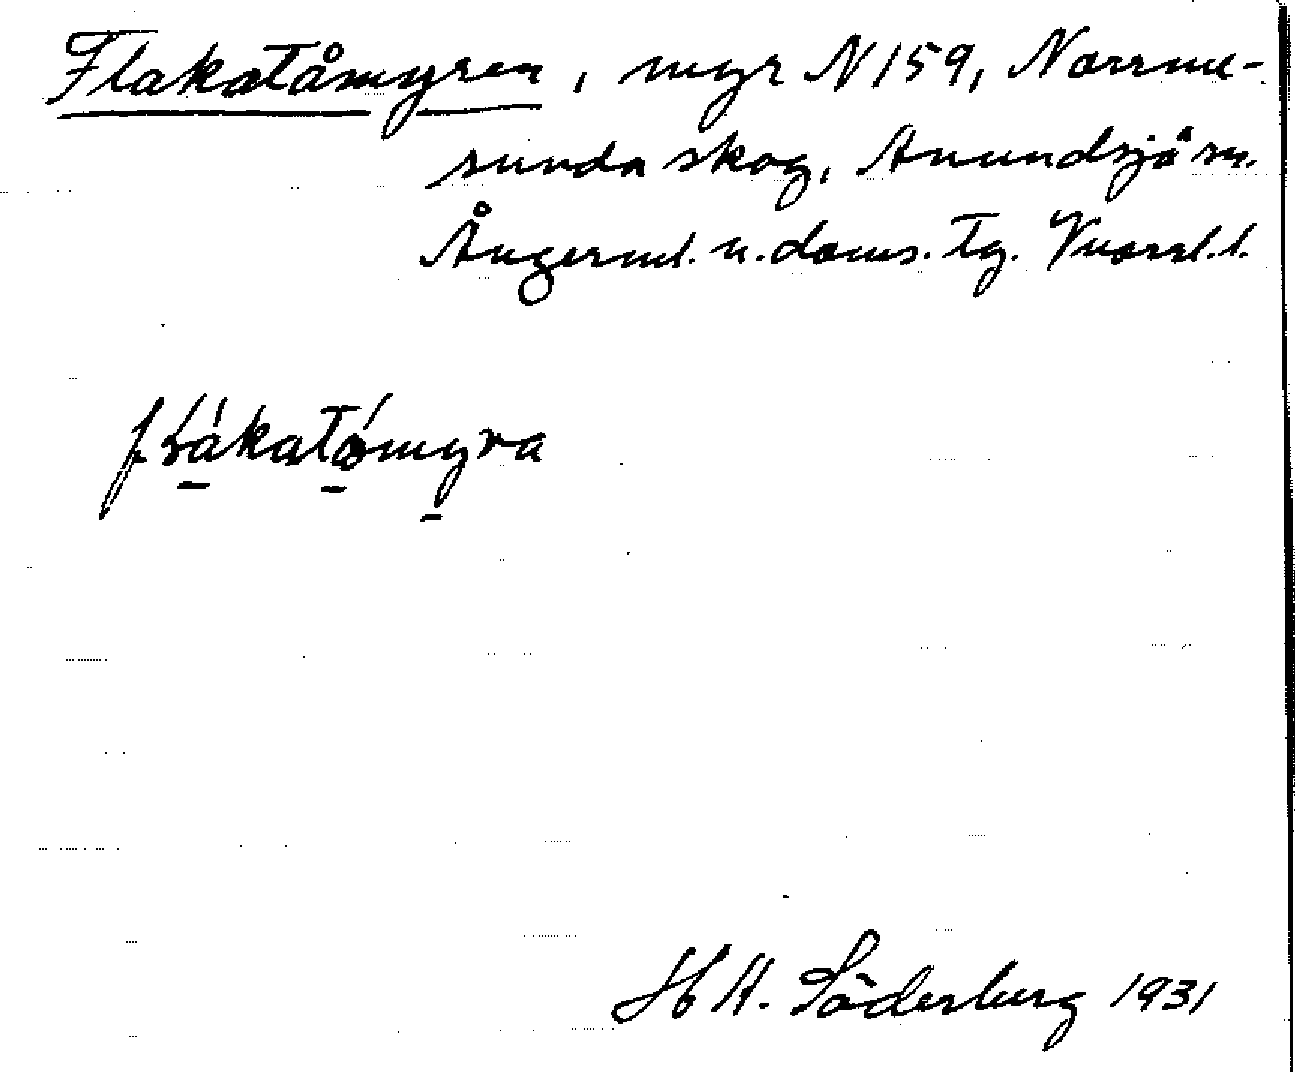 Flakatåmyren, myr N 159, Norrme-
sunda skog, Anundsjö sn.
Ångerml. n. doms. Tg. Vnorrl. l.
H A. Söderberg 1931